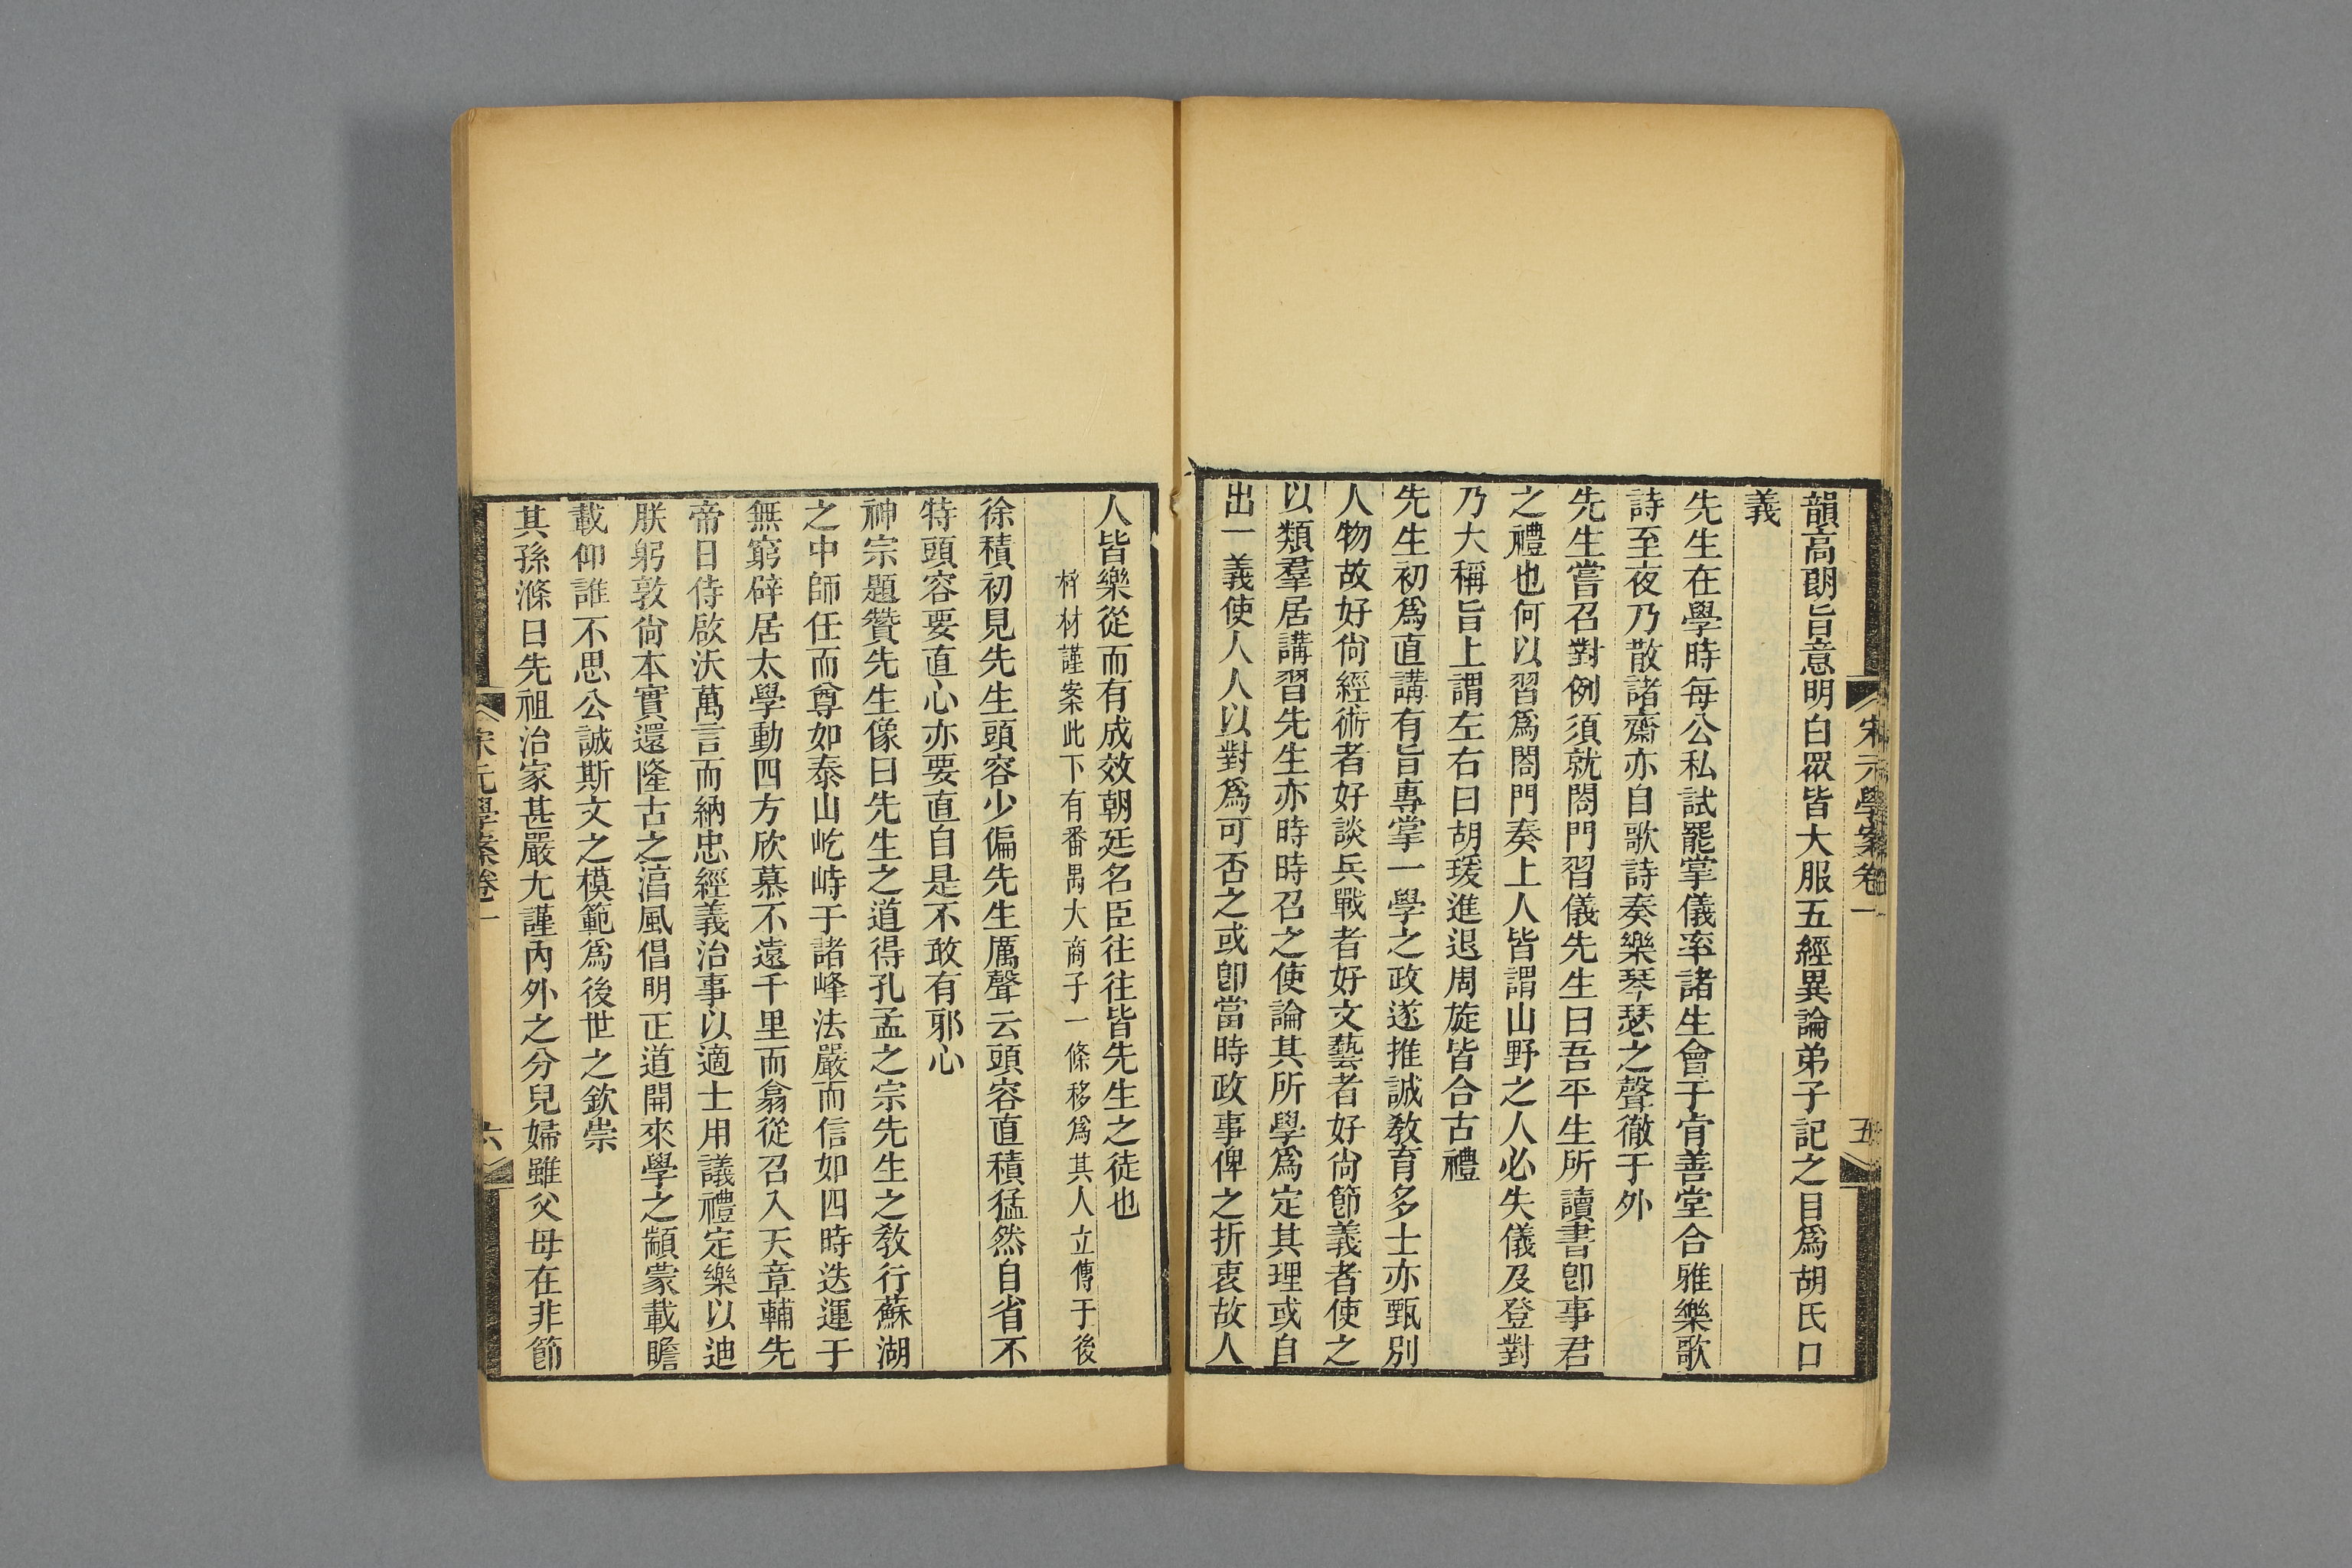 宋元學案卷一
五
韻高朗旨意明白眾皆大服五經異論弟子記之目爲胡氏口
義
先生在學時每公私試罷掌儀率諸生會于肯善堂合雅樂歌
詩至夜乃散諸齋亦自歌詩奏樂琴瑟之聲徹于外
先生嘗召對例須就閤門習儀先生曰吾平生所讀書卽事君
之禮也何以習爲閤門奏上人皆謂山野之人必失儀及登對
乃大稱旨上謂左右曰胡瑗進退周旋皆合古禮
先生初爲直講有旨專掌一學之政遂推誠敎育多士亦甄別
人物故好尙經術者好談兵戰者好文藝者好尙節義者使之
以類羣居講習先生亦時時召之使論其所學爲定其理或自
出一義使人人以對爲可否之或卽當時政事俾之折衷故人
人皆樂從而有成效朝廷名臣往往皆先生之徒也
梓材謹案此下有番禺大商子一條移爲其人立傳于後
徐積初見先生頭容少偏先生厲聲云頭容直積猛然自省不
特頭容要直心亦要直自是不敢有邪心
神宗題贊先生像曰先生之道得孔孟之宗先生之敎行蘇湖
之中師任而尊如泰山屹峙于諸峰法嚴而信如四時迭運于
無窮辟居太學動四方欣慕不遠千里而翕從召入天章輔先
帝日侍啟沃萬言而納忠經義治事以適士用議禮定樂以迪
朕躬敦尙本實還隆古之淳風倡明正道開來學之顓蒙載瞻
載仰誰不思公誠斯文之模範爲後世之欽崇
其孫滌曰先祖治家甚嚴尤謹內外之分兒婦雖父母在非節
宋元學案卷一
六